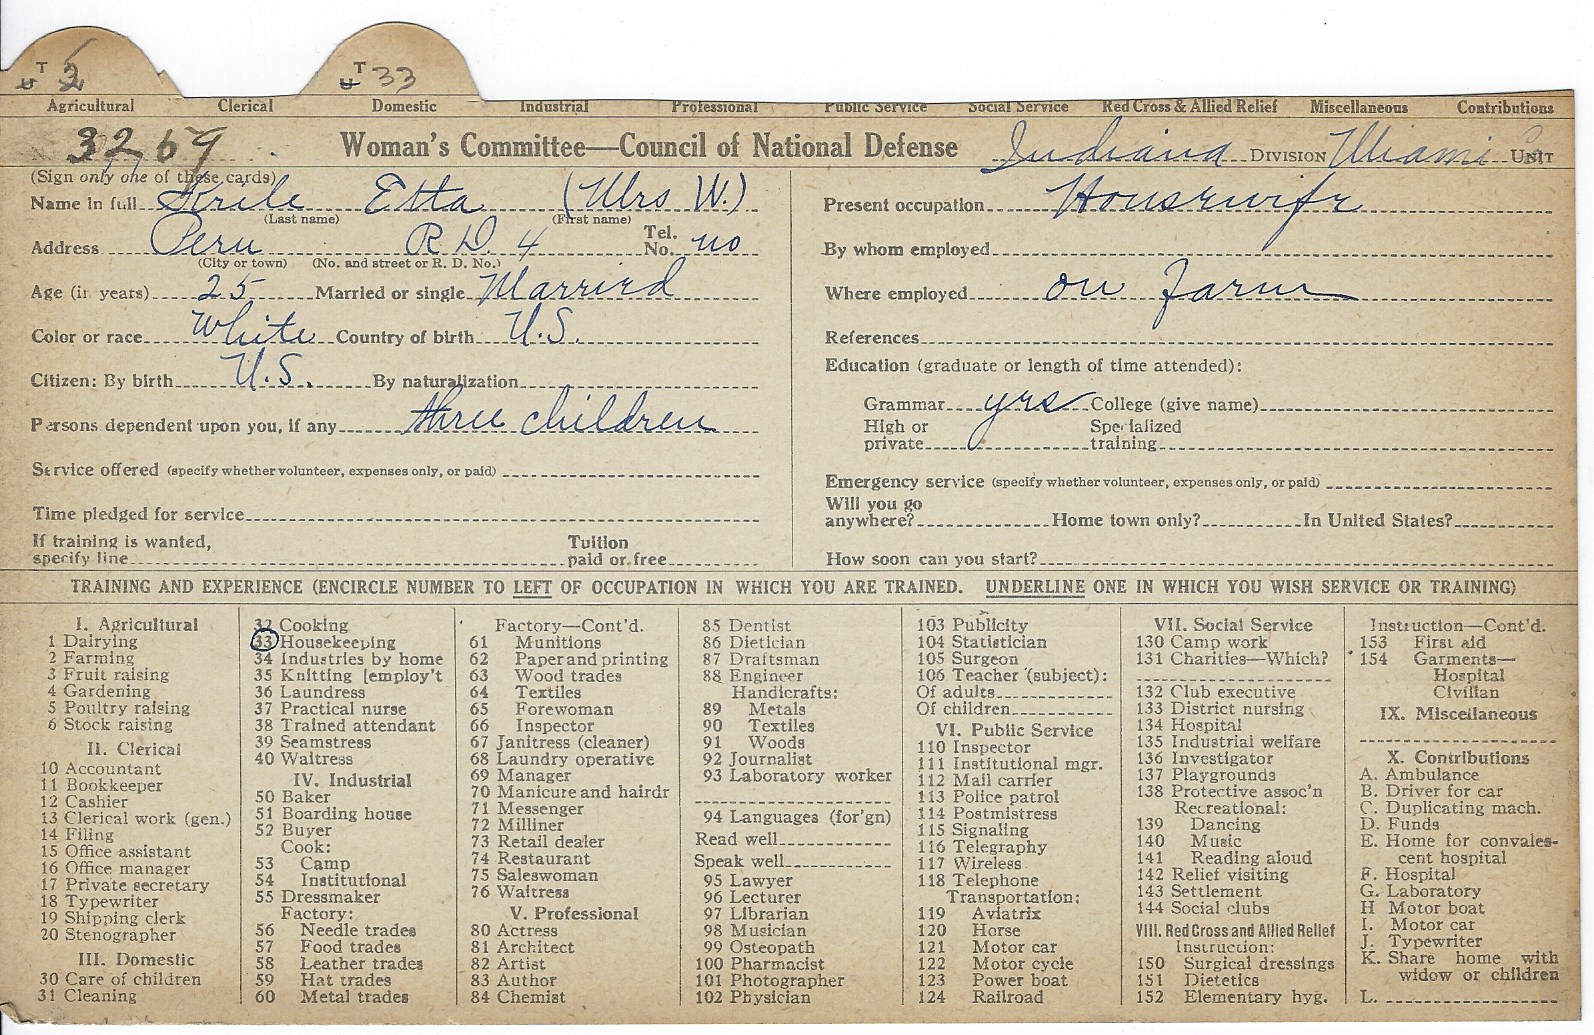 T 2 T 33
Agricultural Clerical Domestic Industrial Professional Public Service Social Service Red Cross & Allied Relief Miscellaneous Contributions
3269 Woman's Committee—Council of National Defense Indiana DIVISION Miami UNIT
(Sign only one of these cards)
Name in full Strile Etta (Mrs W.)
(Last name) (First name)
Address Peru R.D. 4 Tel. No. no
(City or town) (No. and street or R. D. No.)
Age (in years) 25 Married or single Married
Color or race White Country of birth U.S.
Citizen: By birth U.S. By naturalization
Persons dependent upon you, if any three children
Service offered (specify whether volunteer, expenses only, or paid)
Time pledged for service
If training is wanted,
specify line Tuition paid or free
Present occupation Housewife
By whom employed
Where employed on farm
References
Education (graduate or length of time attended):
Grammar yes College (give name)
High or private Specialized training
Emergency service (specify whether volunteer, expenses only, or paid)
Will you go anywhere? Home town only? In United States?
How soon can you start?
TRAINING AND EXPERIENCE (ENCIRCLE NUMBER TO LEFT OF OCCUPATION IN WHICH YOU ARE TRAINED. UNDERLINE ONE IN WHICH YOU WISH SERVICE OR TRAINING)
I. Agricultural
1 Dairying
2 Farming
3 Fruit raising
4 Gardening
5 Poultry raising
6 Stock raising
II. Clerical
10 Accountant
11 Bookkeeper
12 Cashier
13 Clerical work (gen.)
14 Filing
15 Office assistant
16 Office manager
17 Private secretary
18 Typewriter
19 Shipping clerk
20 Stenographer
III. Domestic
30 Care of children
31 Cleaning
32 Cooking
33 Housekeeping
34 Industries by home
35 Knitting [employ't
36 Laundress
37 Practical nurse
38 Trained attendant
39 Seamstress
40 Waitress
IV. Industrial
50 Baker
51 Boarding house
52 Buyer
Cook:
53 Camp
54 Institutional
55 Dressmaker
Factory:
56 Needle trades
57 Food trades
58 Leather trades
59 Hat trades
60 Metal trades
Factory—Cont'd.
61 Munitions
62 Paper and printing
63 Wood trades
64 Textiles
65 Forewoman
66 Inspector
67 Janitress (cleaner)
68 Laundry operative
69 Manager
70 Manicure and hairdr
71 Messenger
72 Milliner
73 Retail dealer
74 Restaurant
75 Saleswoman
76 Waitress
V. Professional
80 Actress
81 Architect
82 Artist
83 Author
84 Chemist
85 Dentist
86 Dietician
87 Draftsman
88 Engineer
Handicrafts:
89 Metals
90 Textiles
91 Woods
92 Journalist
93 Laboratory worker
94 Languages (for'gn)
Read well
Speak well
95 Lawyer
96 Lecturer
97 Librarian
98 Musician
99 Osteopath
100 Pharmacist
101 Photographer
102 Physician
103 Publicity
104 Statistician
105 Surgeon
106 Teacher (subject):
Of adults
Of children
VI. Public Service
110 Inspector
111 Institutional mgr.
112 Mail carrier
113 Police patrol
114 Postmistress
115 Signaling
116 Telegraphy
117 Wireless
118 Telephone
Transportation:
119 Aviatrix
120 Horse
121 Motor car
122 Motor cycle
123 Power boat
124 Railroad
VII. Social Service
130 Camp work
131 Charities—Which?
132 Club executive
133 District nursing
134 Hospital
135 Industrial welfare
136 Investigator
137 Playgrounds
138 Protective assoc'n
Recreational:
139 Dancing
140 Music
141 Reading aloud
142 Relief visiting
143 Settlement
144 Social clubs
VIII. Red Cross and Allied Relief
Instruction:
150 Surgical dressings
151 Dietetics
152 Elementary hyg.
Instruction—Cont'd.
153 First aid
154 Garments—
Hospital
Civilian
IX. Miscellaneous
X. Contributions
A. Ambulance
B. Driver for car
C. Duplicating mach.
D. Funds
E. Home for convales-
cent hospital
F. Hospital
G. Laboratory
H Motor boat
I. Motor car
J. Typewriter
K. Share home with
widow or children
L.